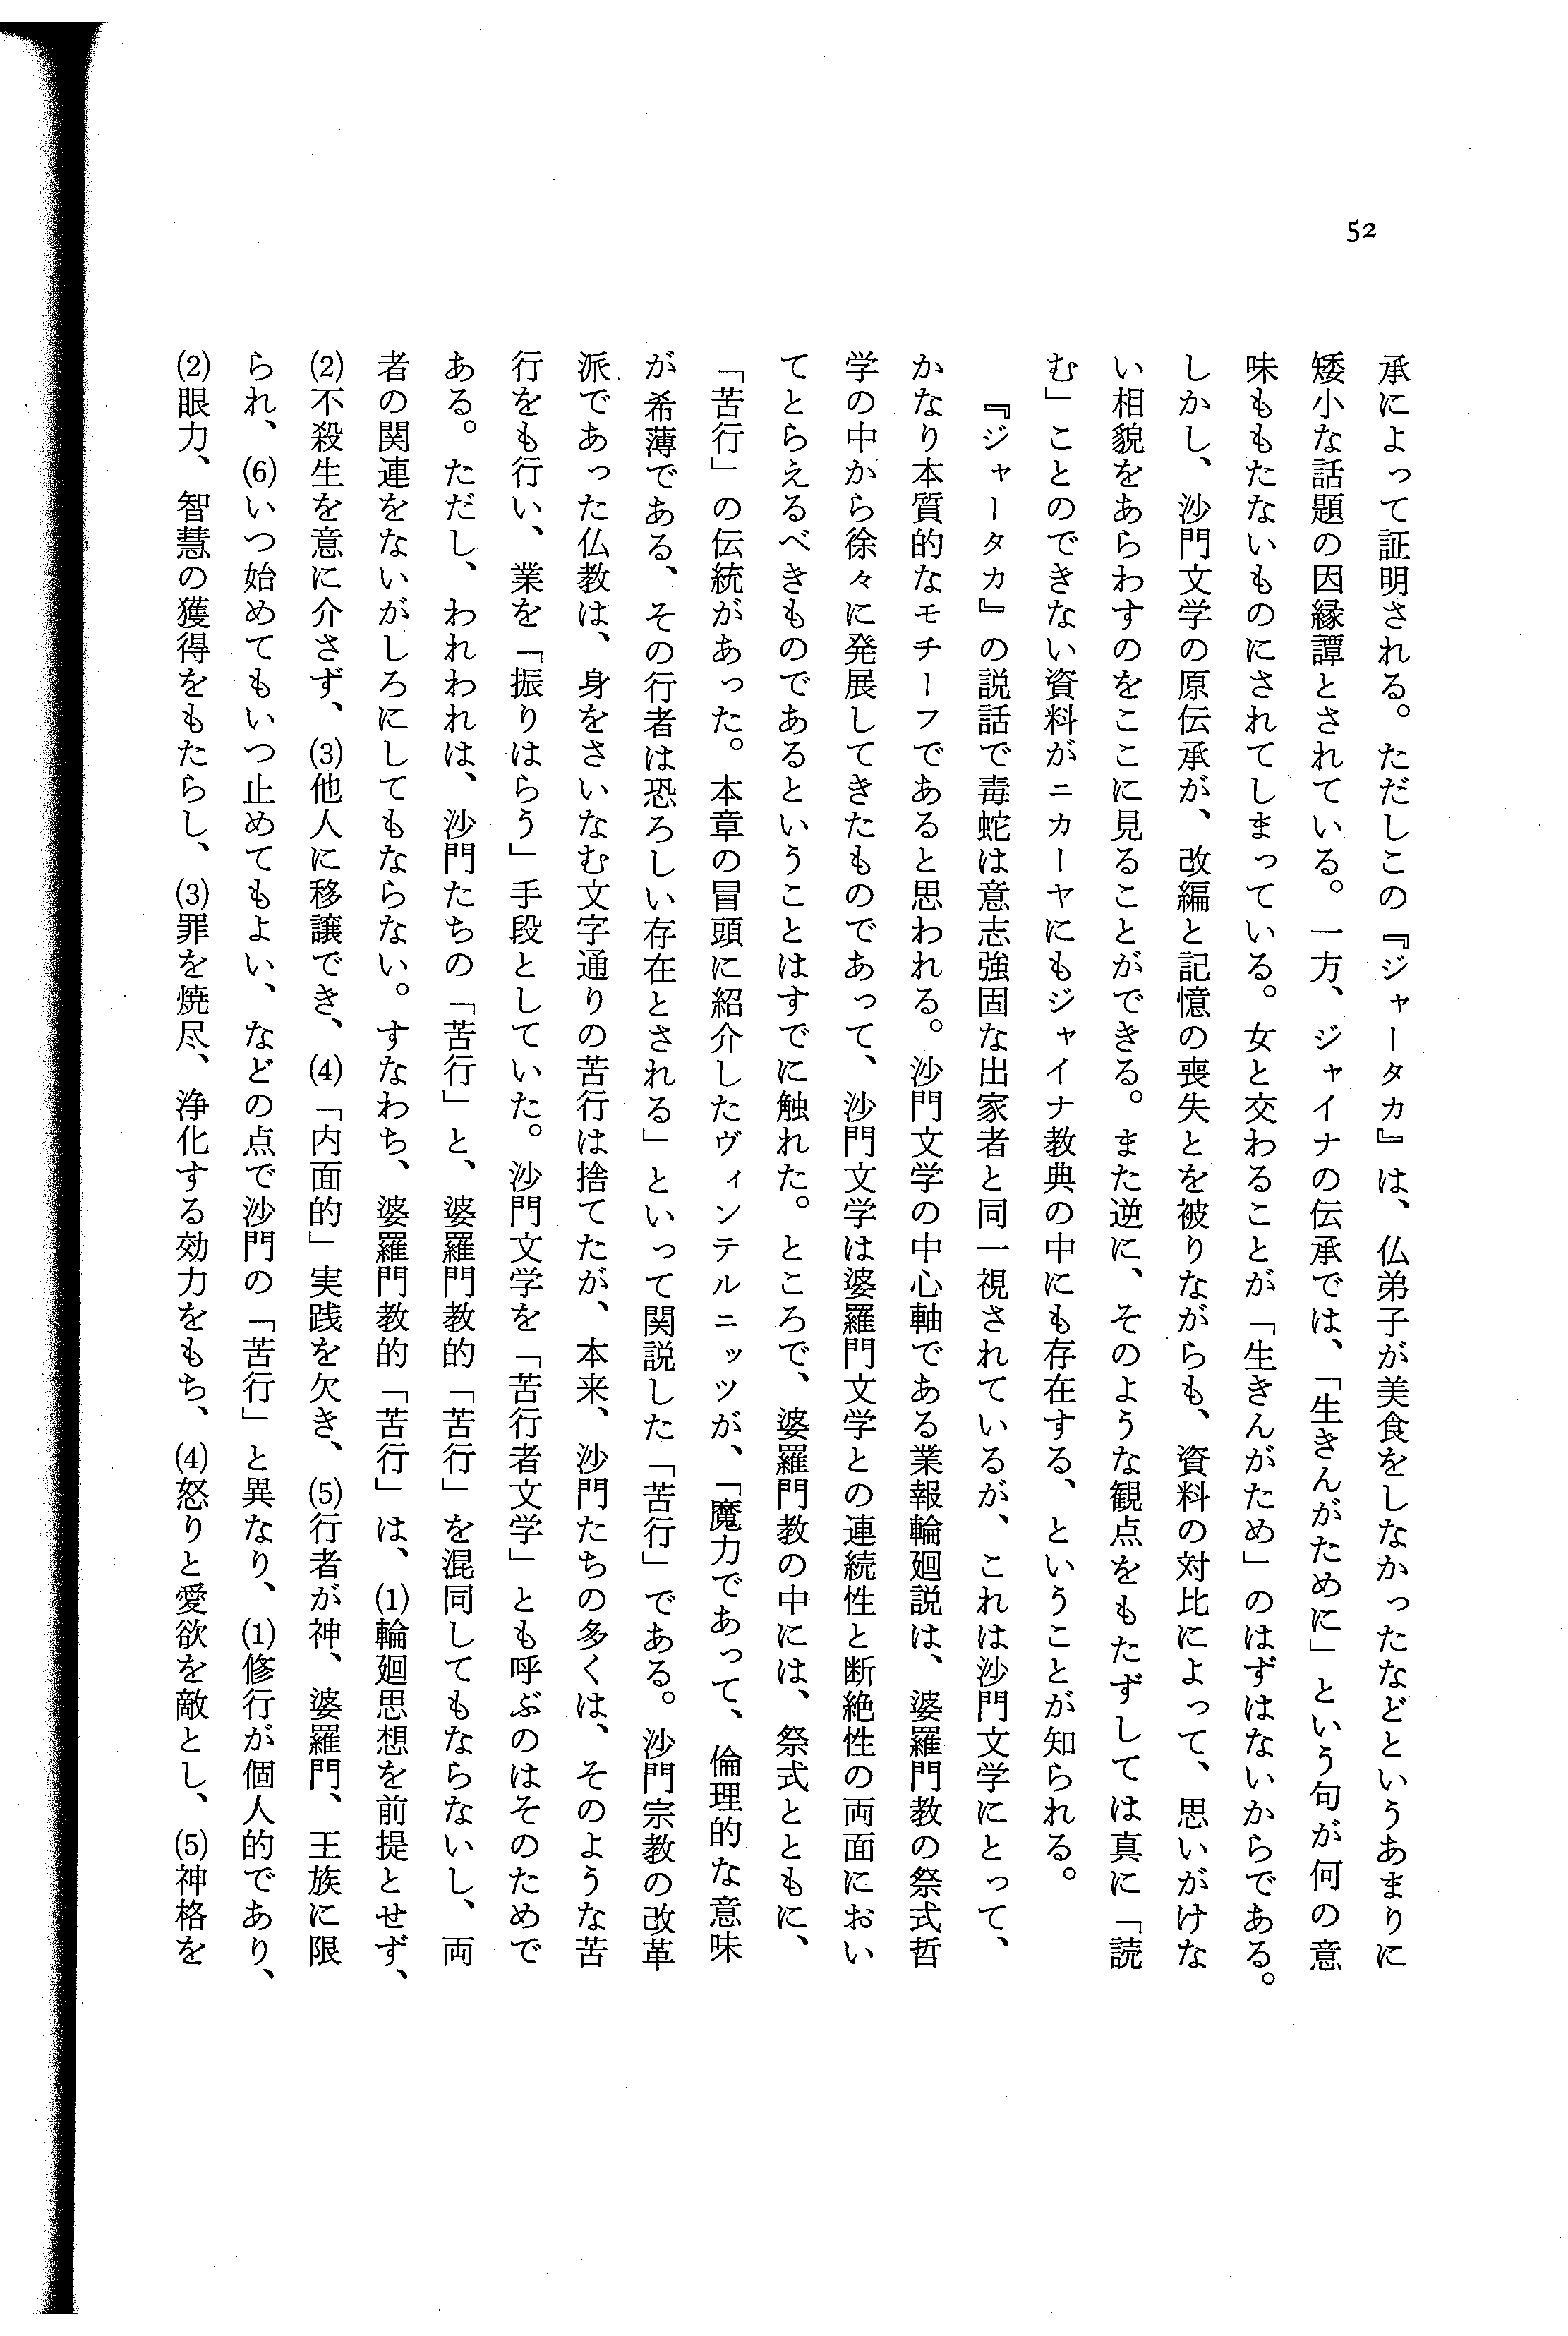 52
承によって証明される。ただしこの『ジャータカ』は、仏弟子が美食をしなかったなどというあまりに
矮小な話題の因縁譚とされている。一方、ジャイナの伝承では、「生きんがために」という句が何の意
味ももたないものにされてしまっている。女と交わることが「生きんがため」のはずはないからである。
しかし、沙門文学の原伝承が、改編と記憶の喪失とを被りながらも、資料の対比によって、思いがけな
い相貌をあらわすのをここに見ることができる。また逆に、そのような観点をもたずしては真に「読
む」ことのできない資料がニカーヤにもジャイナ教典の中にも存在する、ということが知られる。
『ジャータカ』の説話で毒蛇は意志強固な出家者と同一視されているが、これは沙門文学にとって、
かなり本質的なモチーフであると思われる。沙門文学の中心軸である業報輪廻説は、婆羅門教の祭式哲
学の中から徐々に発展してきたものであって、沙門文学は婆羅門文学との連続性と断絶性の両面におい
てとらえるべきものであるということはすでに触れた。ところで、婆羅門教の中には、祭式とともに、
「苦行」の伝統があった。本章の冒頭に紹介したヴィンテルニッツが、「魔力であって、倫理的な意味
が希薄である、その行者は恐ろしい存在とされる」といって関説した「苦行」である。沙門宗教の改革
派であった仏教は、身をさいなむ文字通りの苦行は捨てたが、本来、沙門たちの多くは、そのような苦
行をも行い、業を「振りはらう」手段としていた。沙門文学を「苦行者文学」とも呼ぶのはそのためで
ある。ただし、われわれは、沙門たちの「苦行」と、婆羅門教的「苦行」を混同してもならないし、両
者の関連をないがしろにしてもならない。すなわち、婆羅門教的「苦行」は、(1)輪廻思想を前提とせず、
(2)不殺生を意に介さず、(3)他人に移譲でき、(4)「内面的」実践を欠き、(5)行者が神、婆羅門、王族に限
られ、(6)いつ始めてもいつ止めてもよい、などの点で沙門の「苦行」と異なり、(1)修行が個人的であり、
(2)眼力、智慧の獲得をもたらし、(3)罪を焼尽、浄化する効力をもち、(4)怒りと愛欲を敵とし、(5)神格を